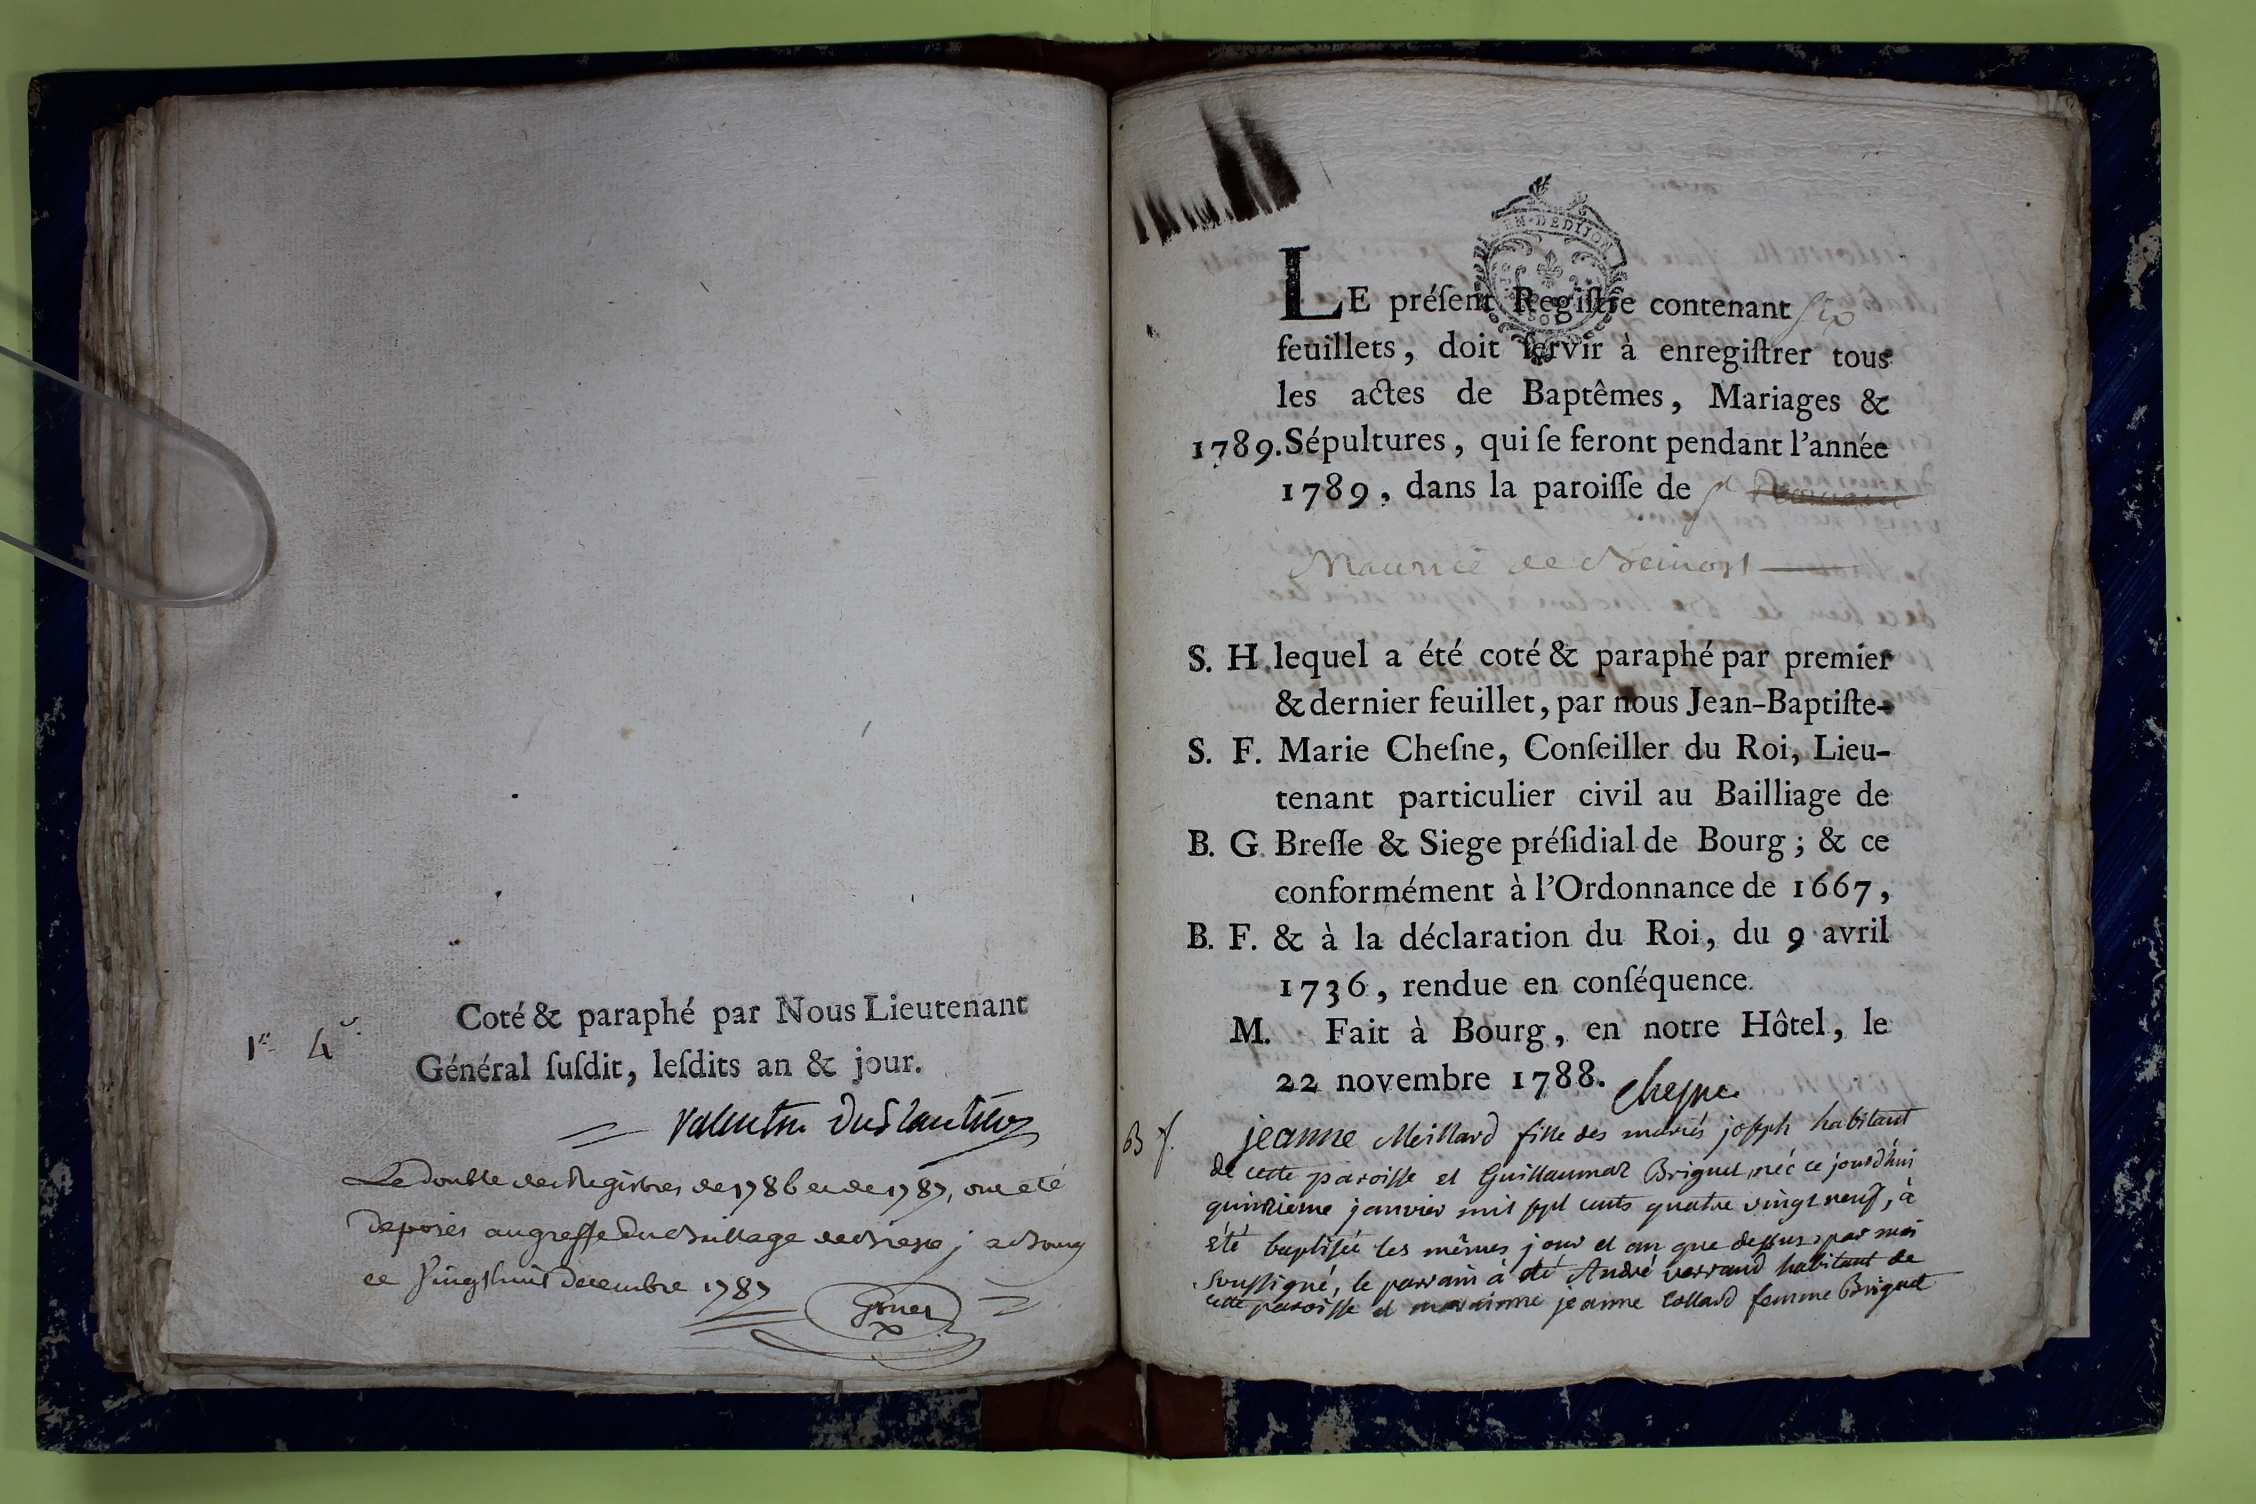 Coté & paraphé par Nous Lieutenant
1er 4e.
Général ſuſdit, leſdits an & jour.
Valentin Duplantier
Le double des Registres de 1786 et de 1787, ont eté
deposés au greffe du Baillage de Bresse, a Bourg
ce vingt huit Decembre 1787
GEN. DE DIJON
LE préſent Regiſtre contenant six
feuillets, doit ſervir à enregiſtrer tous
les actes de Baptêmes, Mariages &
1789. Sépultures, qui ſe feront pendant l'année
1789, dans la paroiſſe de St
Maurice de Beinost
S. H. lequel a été coté & paraphé par premier
& dernier feuillet, par nous Jean-Baptiſte-
S. F. Marie Cheſne, Conſeiller du Roi, Lieu-
tenant particulier civil au Bailliage de
B. G. Breſſe & Siege préſidial de Bourg; & ce
conformément à l'Ordonnance de 1667,
B. F. & à la déclaration du Roi, du 9 avril
1736, rendue en conſéquence.
M. Fait à Bourg, en notre Hôtel, le
22 novembre 1788. Chesne
B f. jeanne Meillard fille des mariés joseph habitant
de cette paroisse et Guillaumaz Briguet, née ce jourd'hui
quinzieme janvier mil sept cents quatre vingt neuf, à
été baptisée les mêmes jour et an que dessus, par moi
soussigné, le parrain à été André verrand habitant de
cette paroisse et marainne jeanne Collard femme Briguet